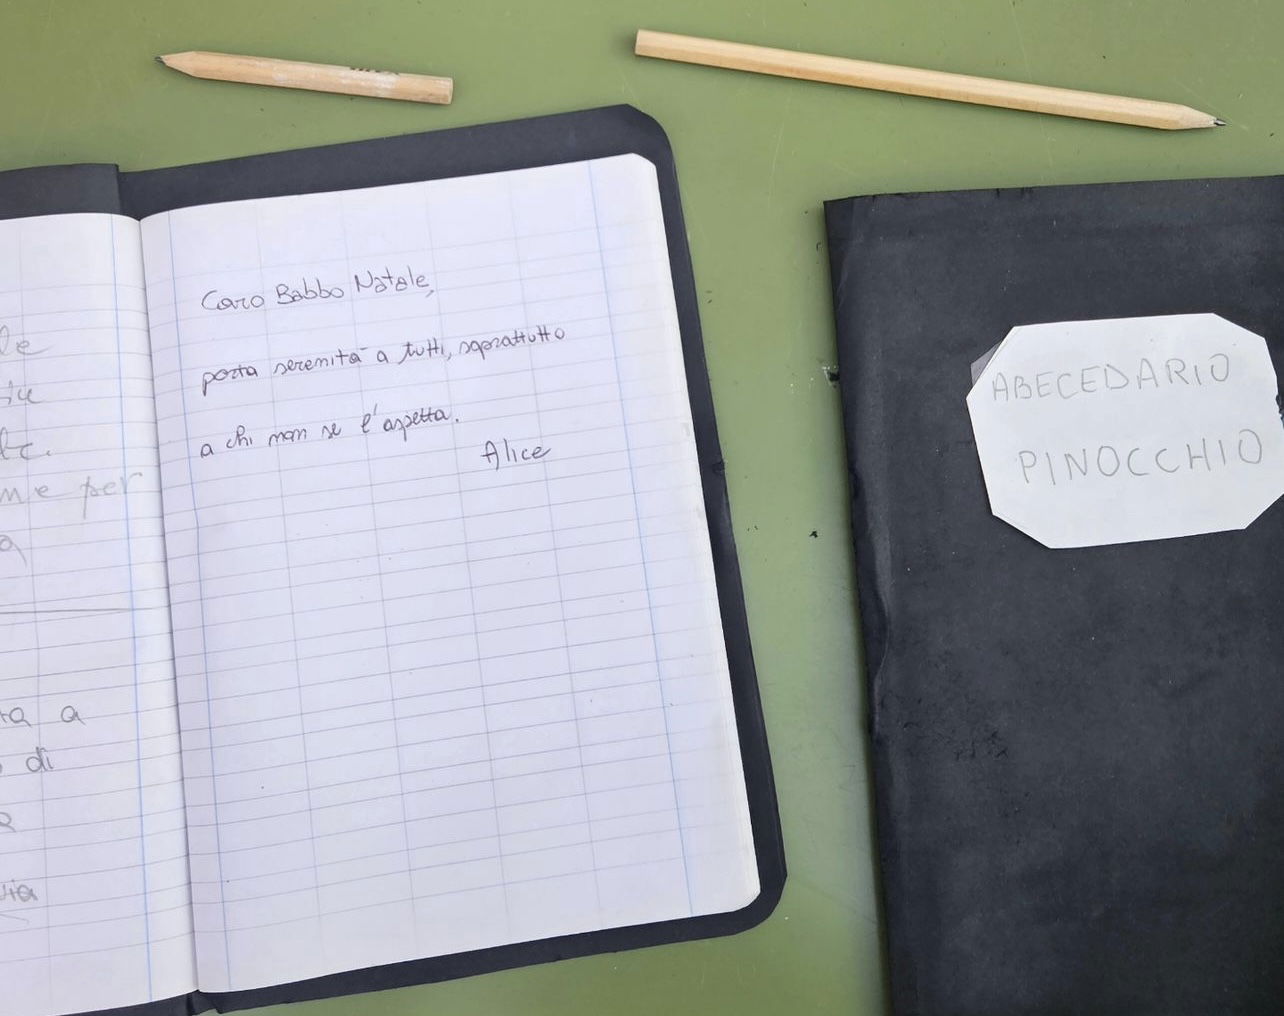 me per
a
di
Caro Babbo Natale,
porta serenità a tutti, soprattutto
a chi non se l'aspetta.
Alice
ABECEDARIO
PINOCCHIO